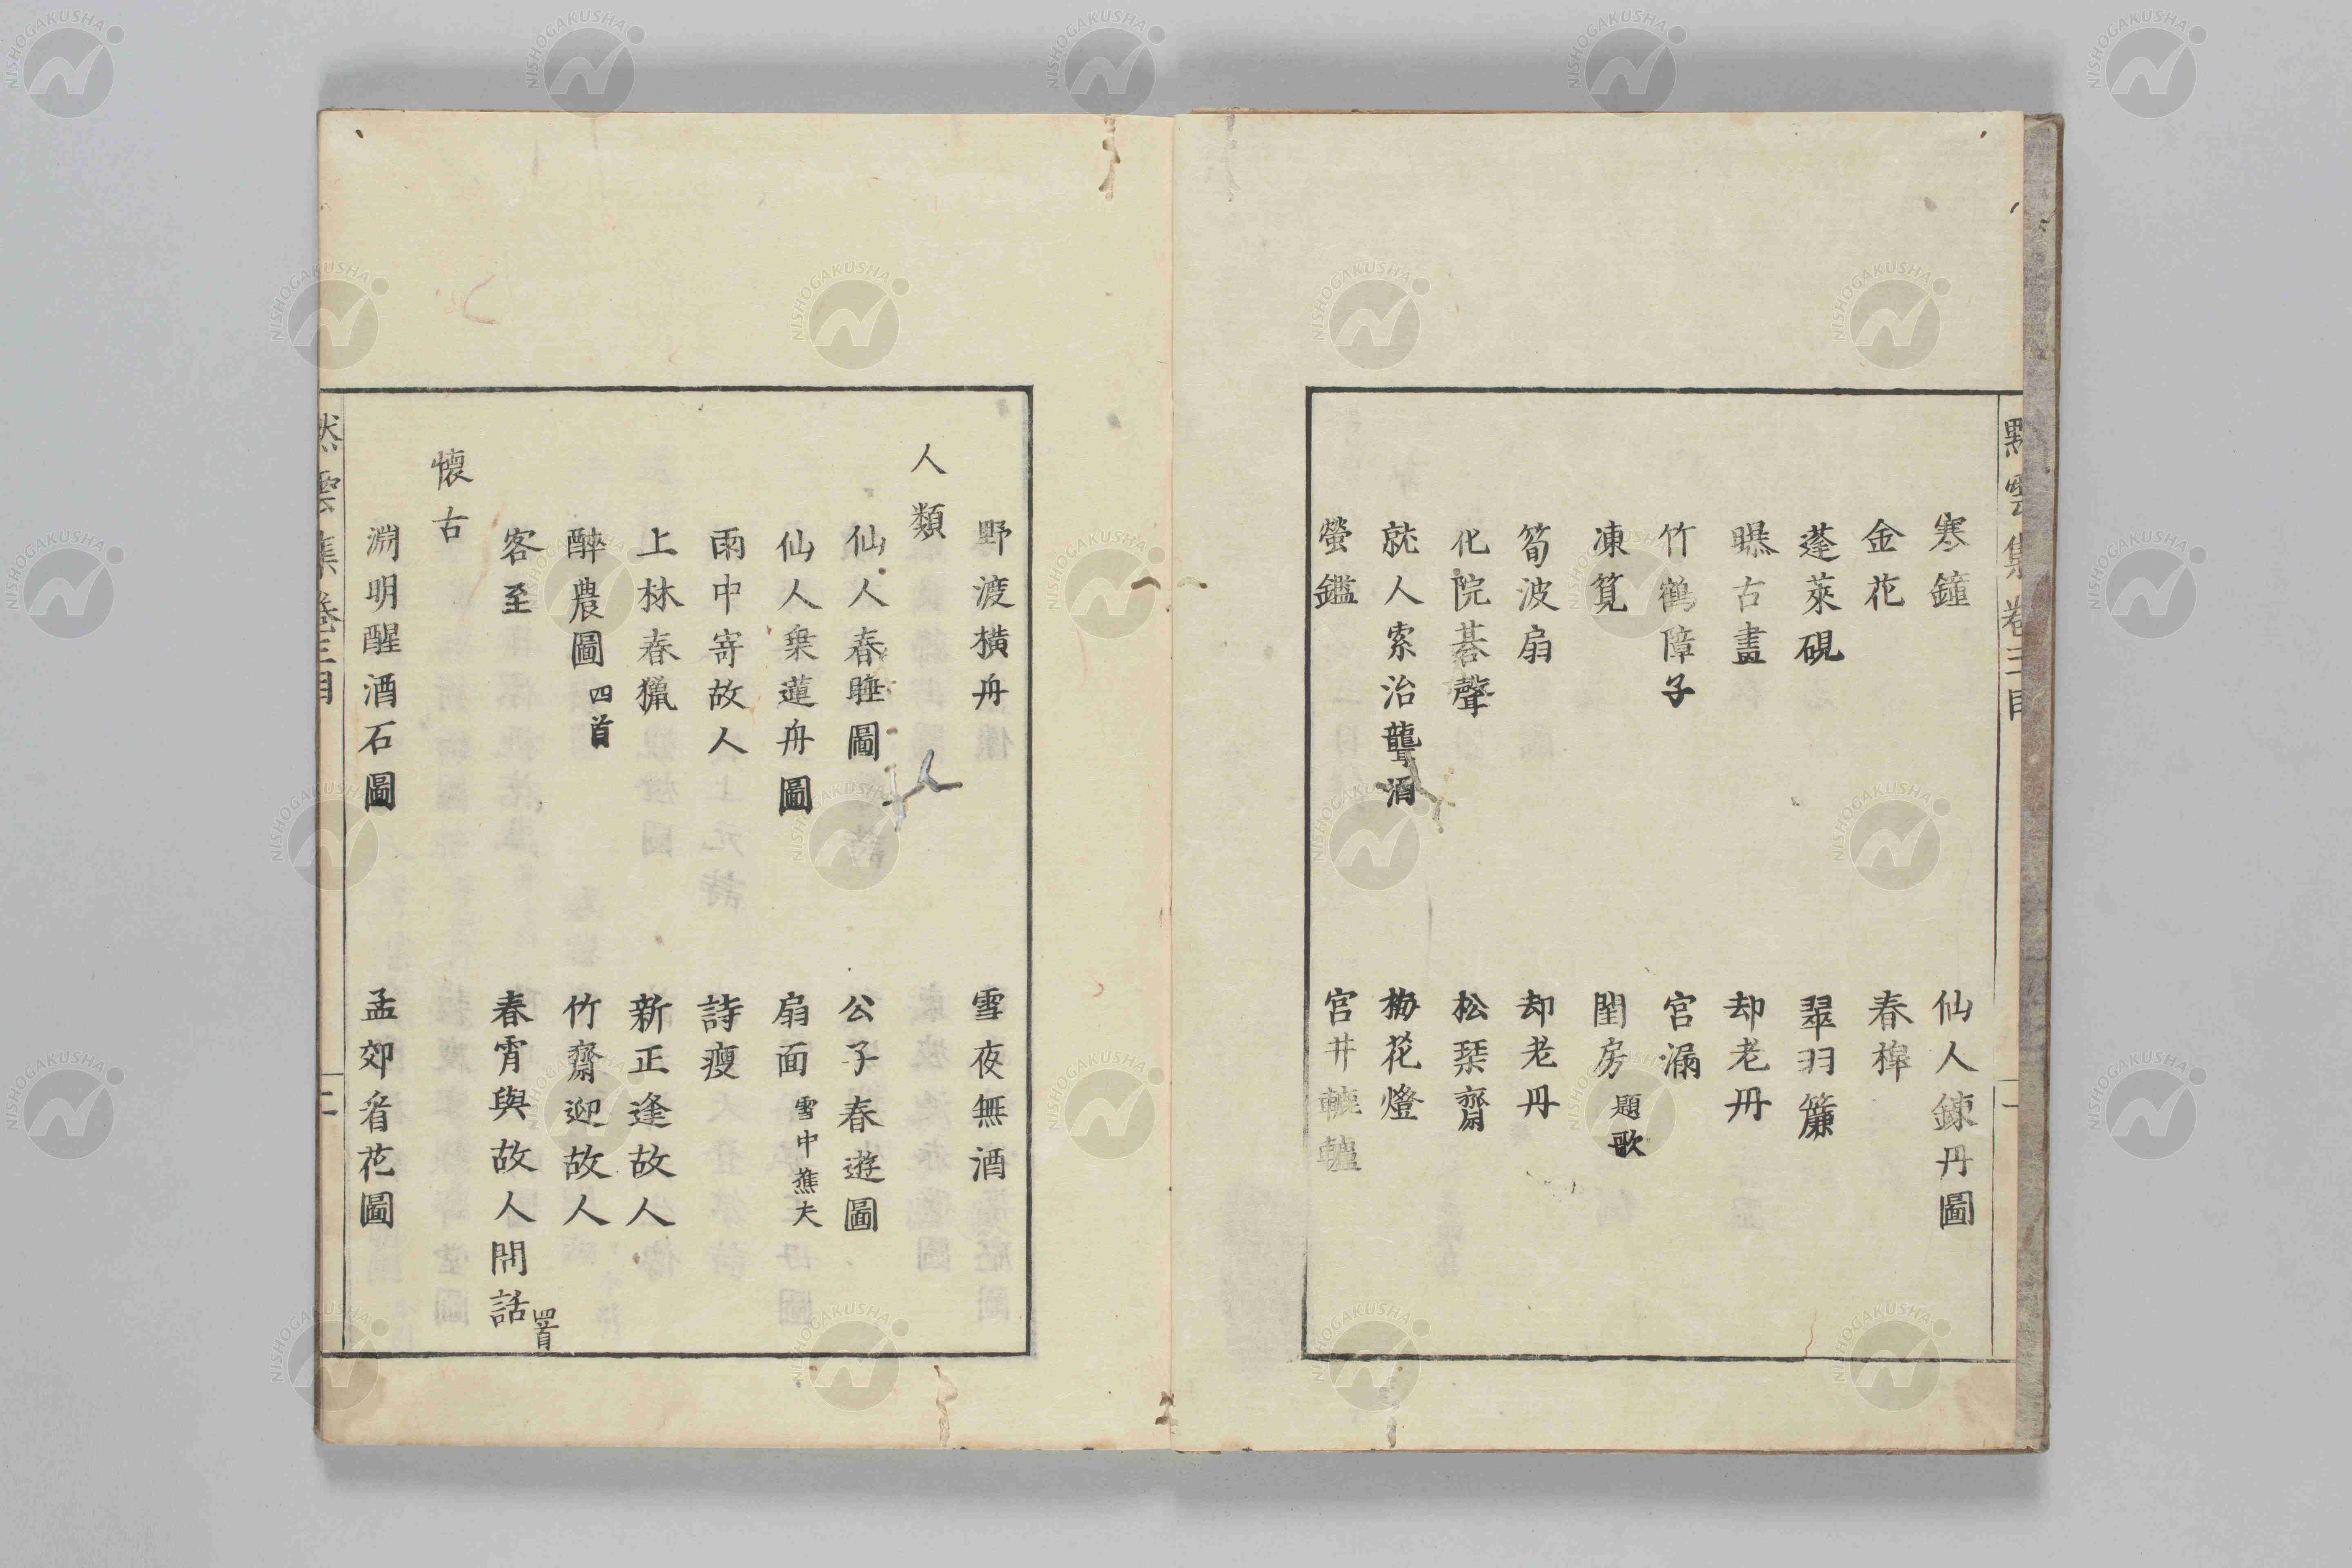 寒鐘　仙人錬丹圖
金花　春榫
蓬萊硯　翠羽簾
曝古畫　却老丹
竹鶴障子　宮漏
凍筧　閨房題歌
筍波扇　却老丹
化院碁聲　松琹齋
就人索治聾酒　梅花燈
螢鑑　宮井轆轤
野渡橫舟　雪夜無酒
人類
仙人春睡圖　公子春遊圖
仙人乗蓮舟圖　扇面雪中樵夫
雨中寄故人　詩瘦
上林春獵　新正逢故人
醉農圖四首　竹齋迎故人
客至　春宵與故人閒話四首
懷古
淵明醒酒石圖　孟郊看花圖
雲集卷三目
NISHOGAKUSHA